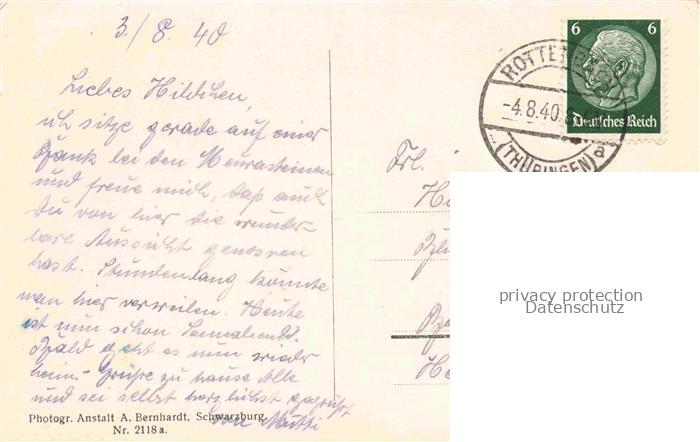 3/8. 40
Liebes Hildchen,
ich sitze gerade auf einer
Bank bei den
und freue mich, daß auch
Du von hier die wunder-
bare Aussicht genossen
hast. Stundenlang könnte
man hier verweilen. Heute
ist nun schon Sonnabend.
Bald geht es nun wieder
heim. Grüße zu hause Alle
und sei selbst herzlichst gegrüßt
von Mutti
Photogr. Anstalt A. Bernhardt, Schwarzburg.
Nr. 2118 a.
6 6
Deutsches Reich
ROTTENBACH
-4.8.40.
(THÜRINGEN) a
Frl.
privacy protection
Datenschutz